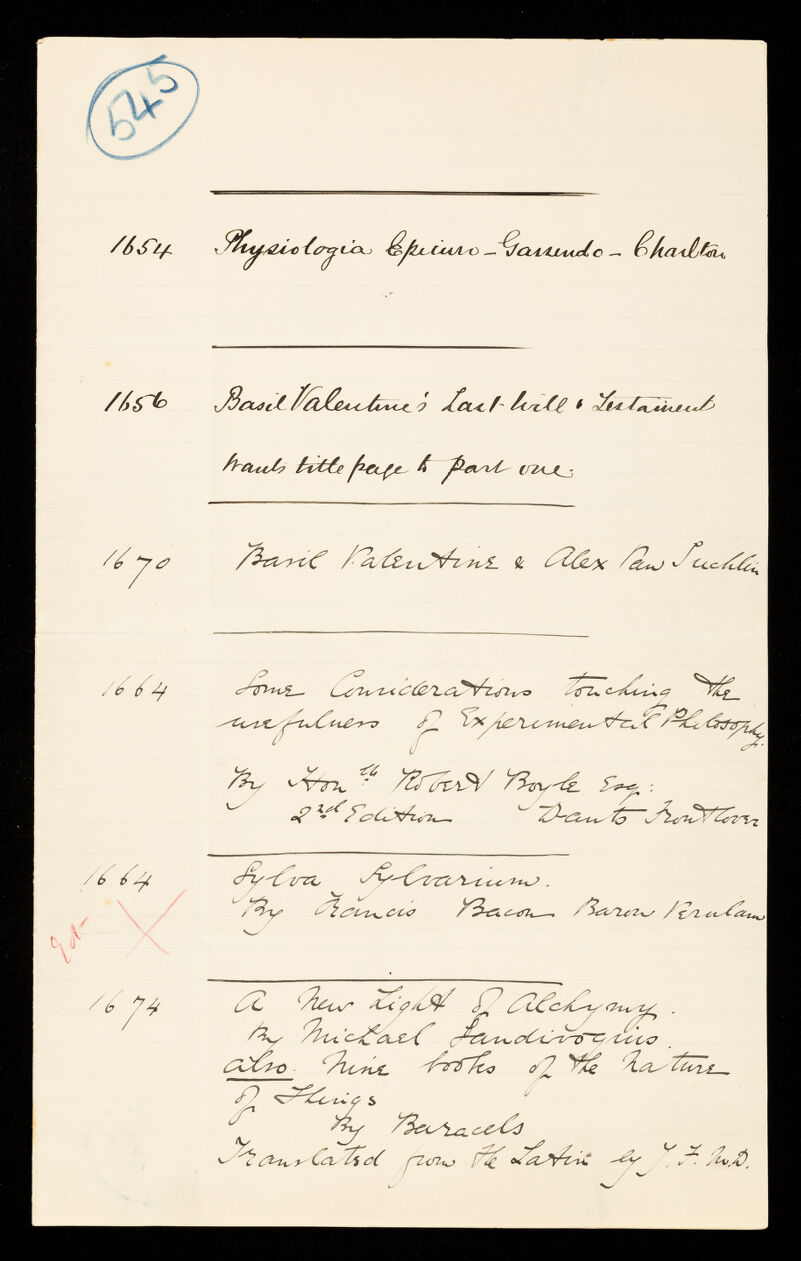 545
1654 Physiologia Epicuro - Gassendo - Charlton
1656 Basil Valentine's Last Will & Testament
Wants title page to part one.
1670 Basil Valentine & Alex Van Suchlin
1664 Some Considerations touching the
usefulness of Experimental Philosophy.
By Hon Robert Boyle Esq:
2nd Edition Wants Front Cover
1664 Sylva Sylvarium.
By Francis Bacon Baron Verulam
X
1674 A New Light of Alchymy.
By Michael Sandivogius.
also. Nine books of the Nature
of Things
By Baracels
Translated from the Latin by J. F. M.D.